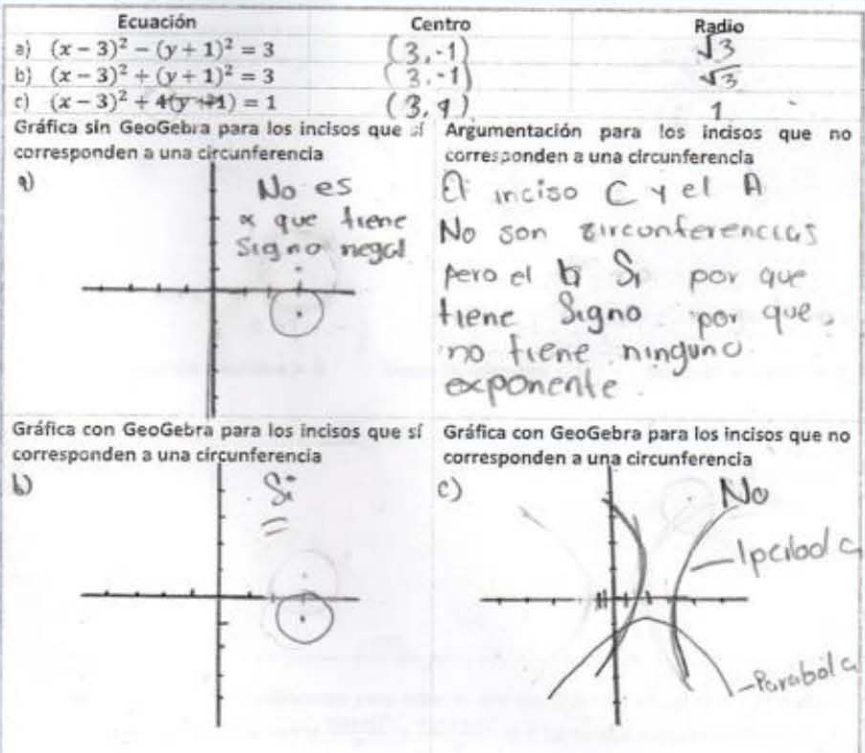 Ecuación Centro Radio
a) (x − 3)² − (y + 1)² = 3 (3,-1) √3
b) (x − 3)² + (y + 1)² = 3 (3.-1) √3
c) (x − 3)² + 4(y + 1) = 1 (3,9) 1
Gráfica sin GeoGebra para los incisos que sí
corresponden a una circunferencia
a)
No es
que tiene
signo negal
Argumentación para los incisos que no
corresponden a una circunferencia
El inciso C y el A
No son circunferencias
pero el b Si por que
tiene Signo por que
no tiene ninguno
exponente.
Gráfica con GeoGebra para los incisos que sí
corresponden a una circunferencia
b)
Si
Gráfica con GeoGebra para los incisos que no
corresponden a una circunferencia
c)
No
Iperbola
Parabola